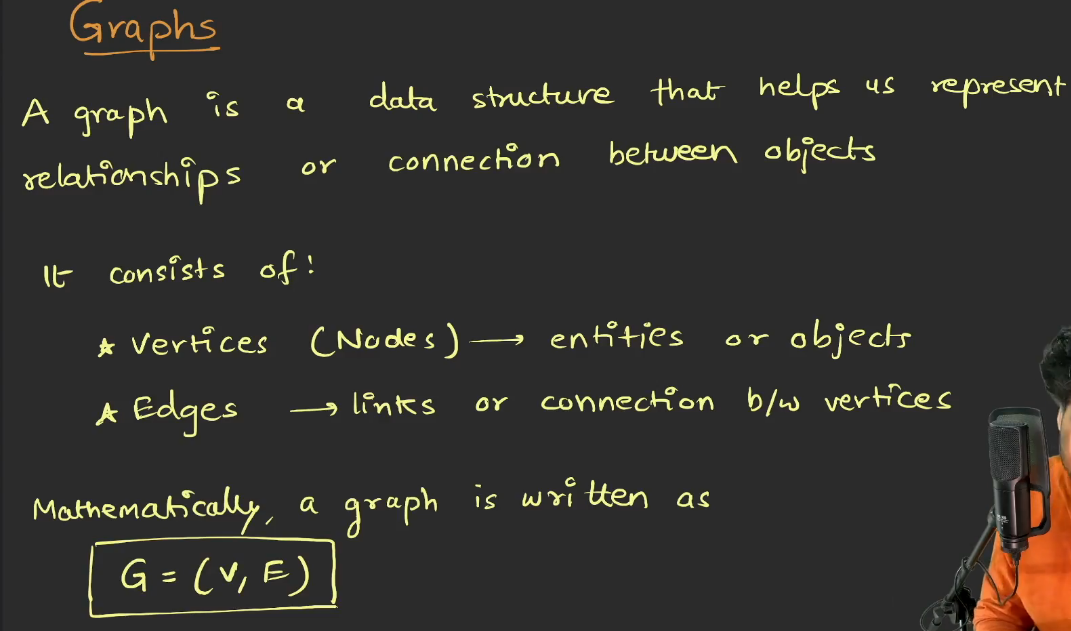 Graphs
A graph is a data structure that helps us represent
relationships or connection between objects
It consists of:
* Vertices (Nodes) → entities or objects
* Edges → links or connection b/w vertices
Mathematically, a graph is written as
G = (V, E)